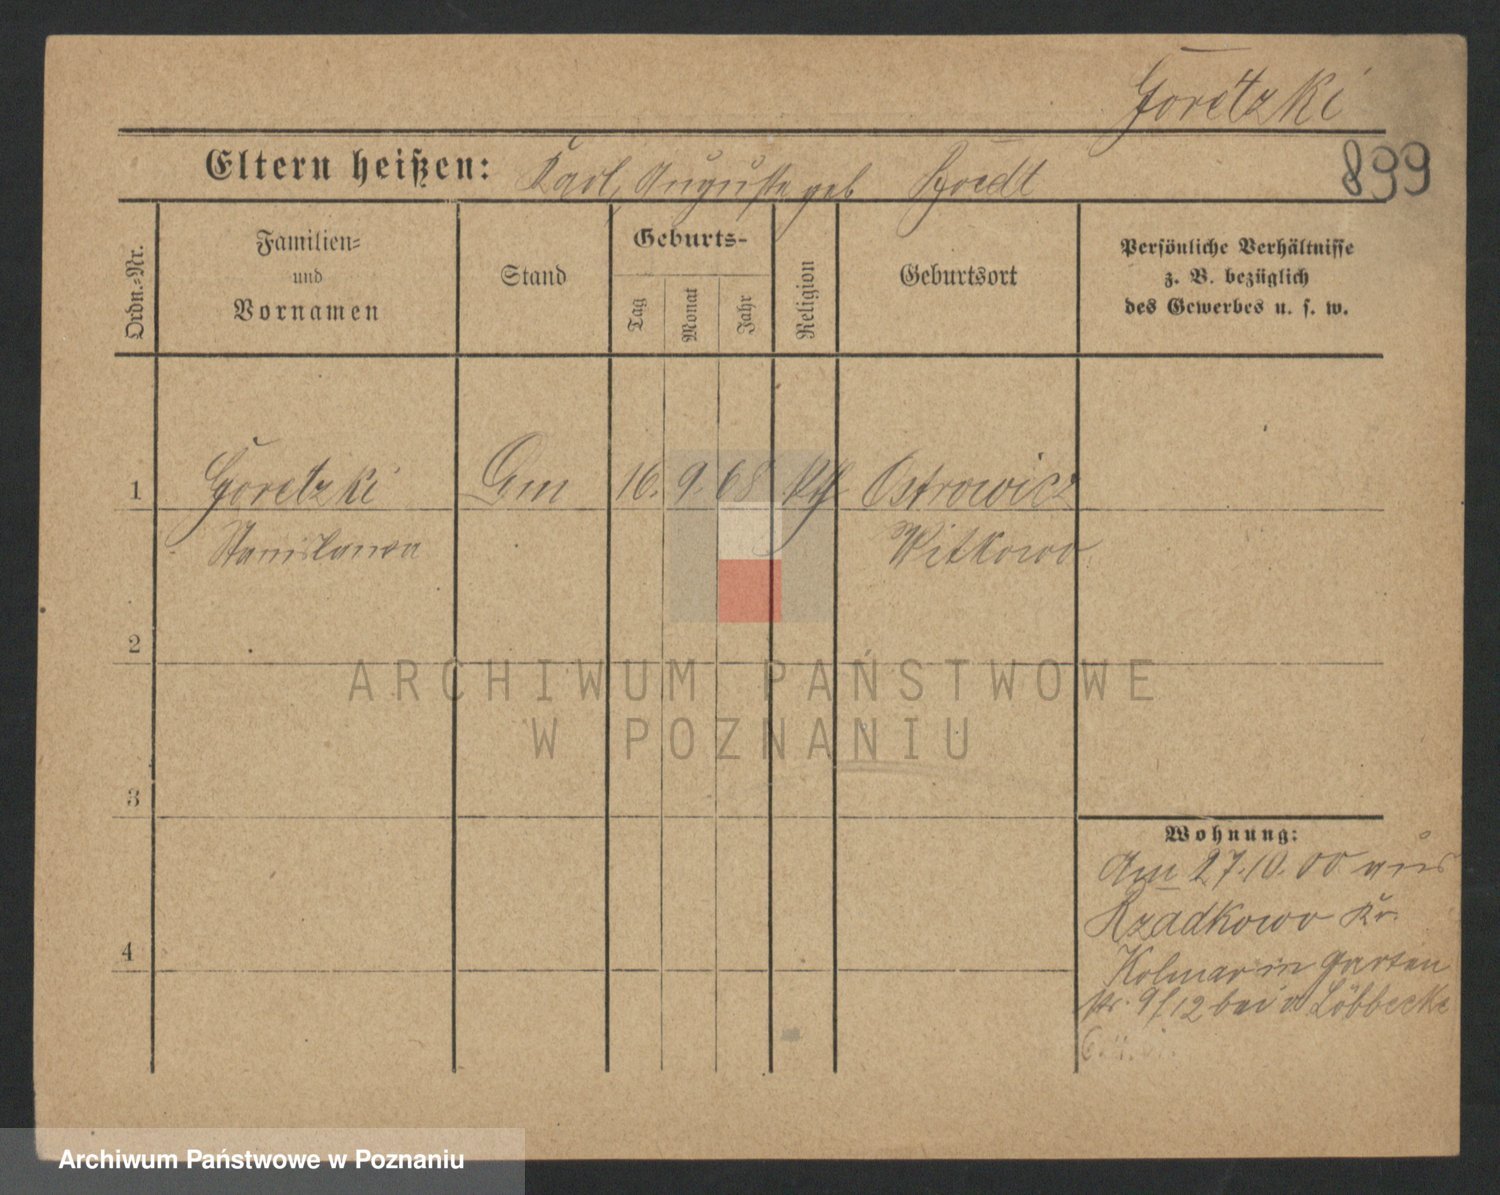 Goretzki
899
Eltern heißen: Karl, Auguste geb
Ordn.-Nr.
Familien-
und
Vornamen
Stand
Geburts-
Tag
Monat
Jahr
Religion
Geburtsort
Persönliche Verhältnisse
z. B. bezüglich
des Gewerbes u. s. w.
1 Goretzki 16. 9. 68 Ostrowicz
Stanislawa Witkowo
2
ARCHIWUM PAŃSTWOWE
W POZNANIU
3
Wohnung:
Am 27.10.00 aus
Rzadkowo Kr.
Kolmar in Garten
str. 9/12 bei v Löbbecke
4
Archiwum Państwowe w Poznaniu